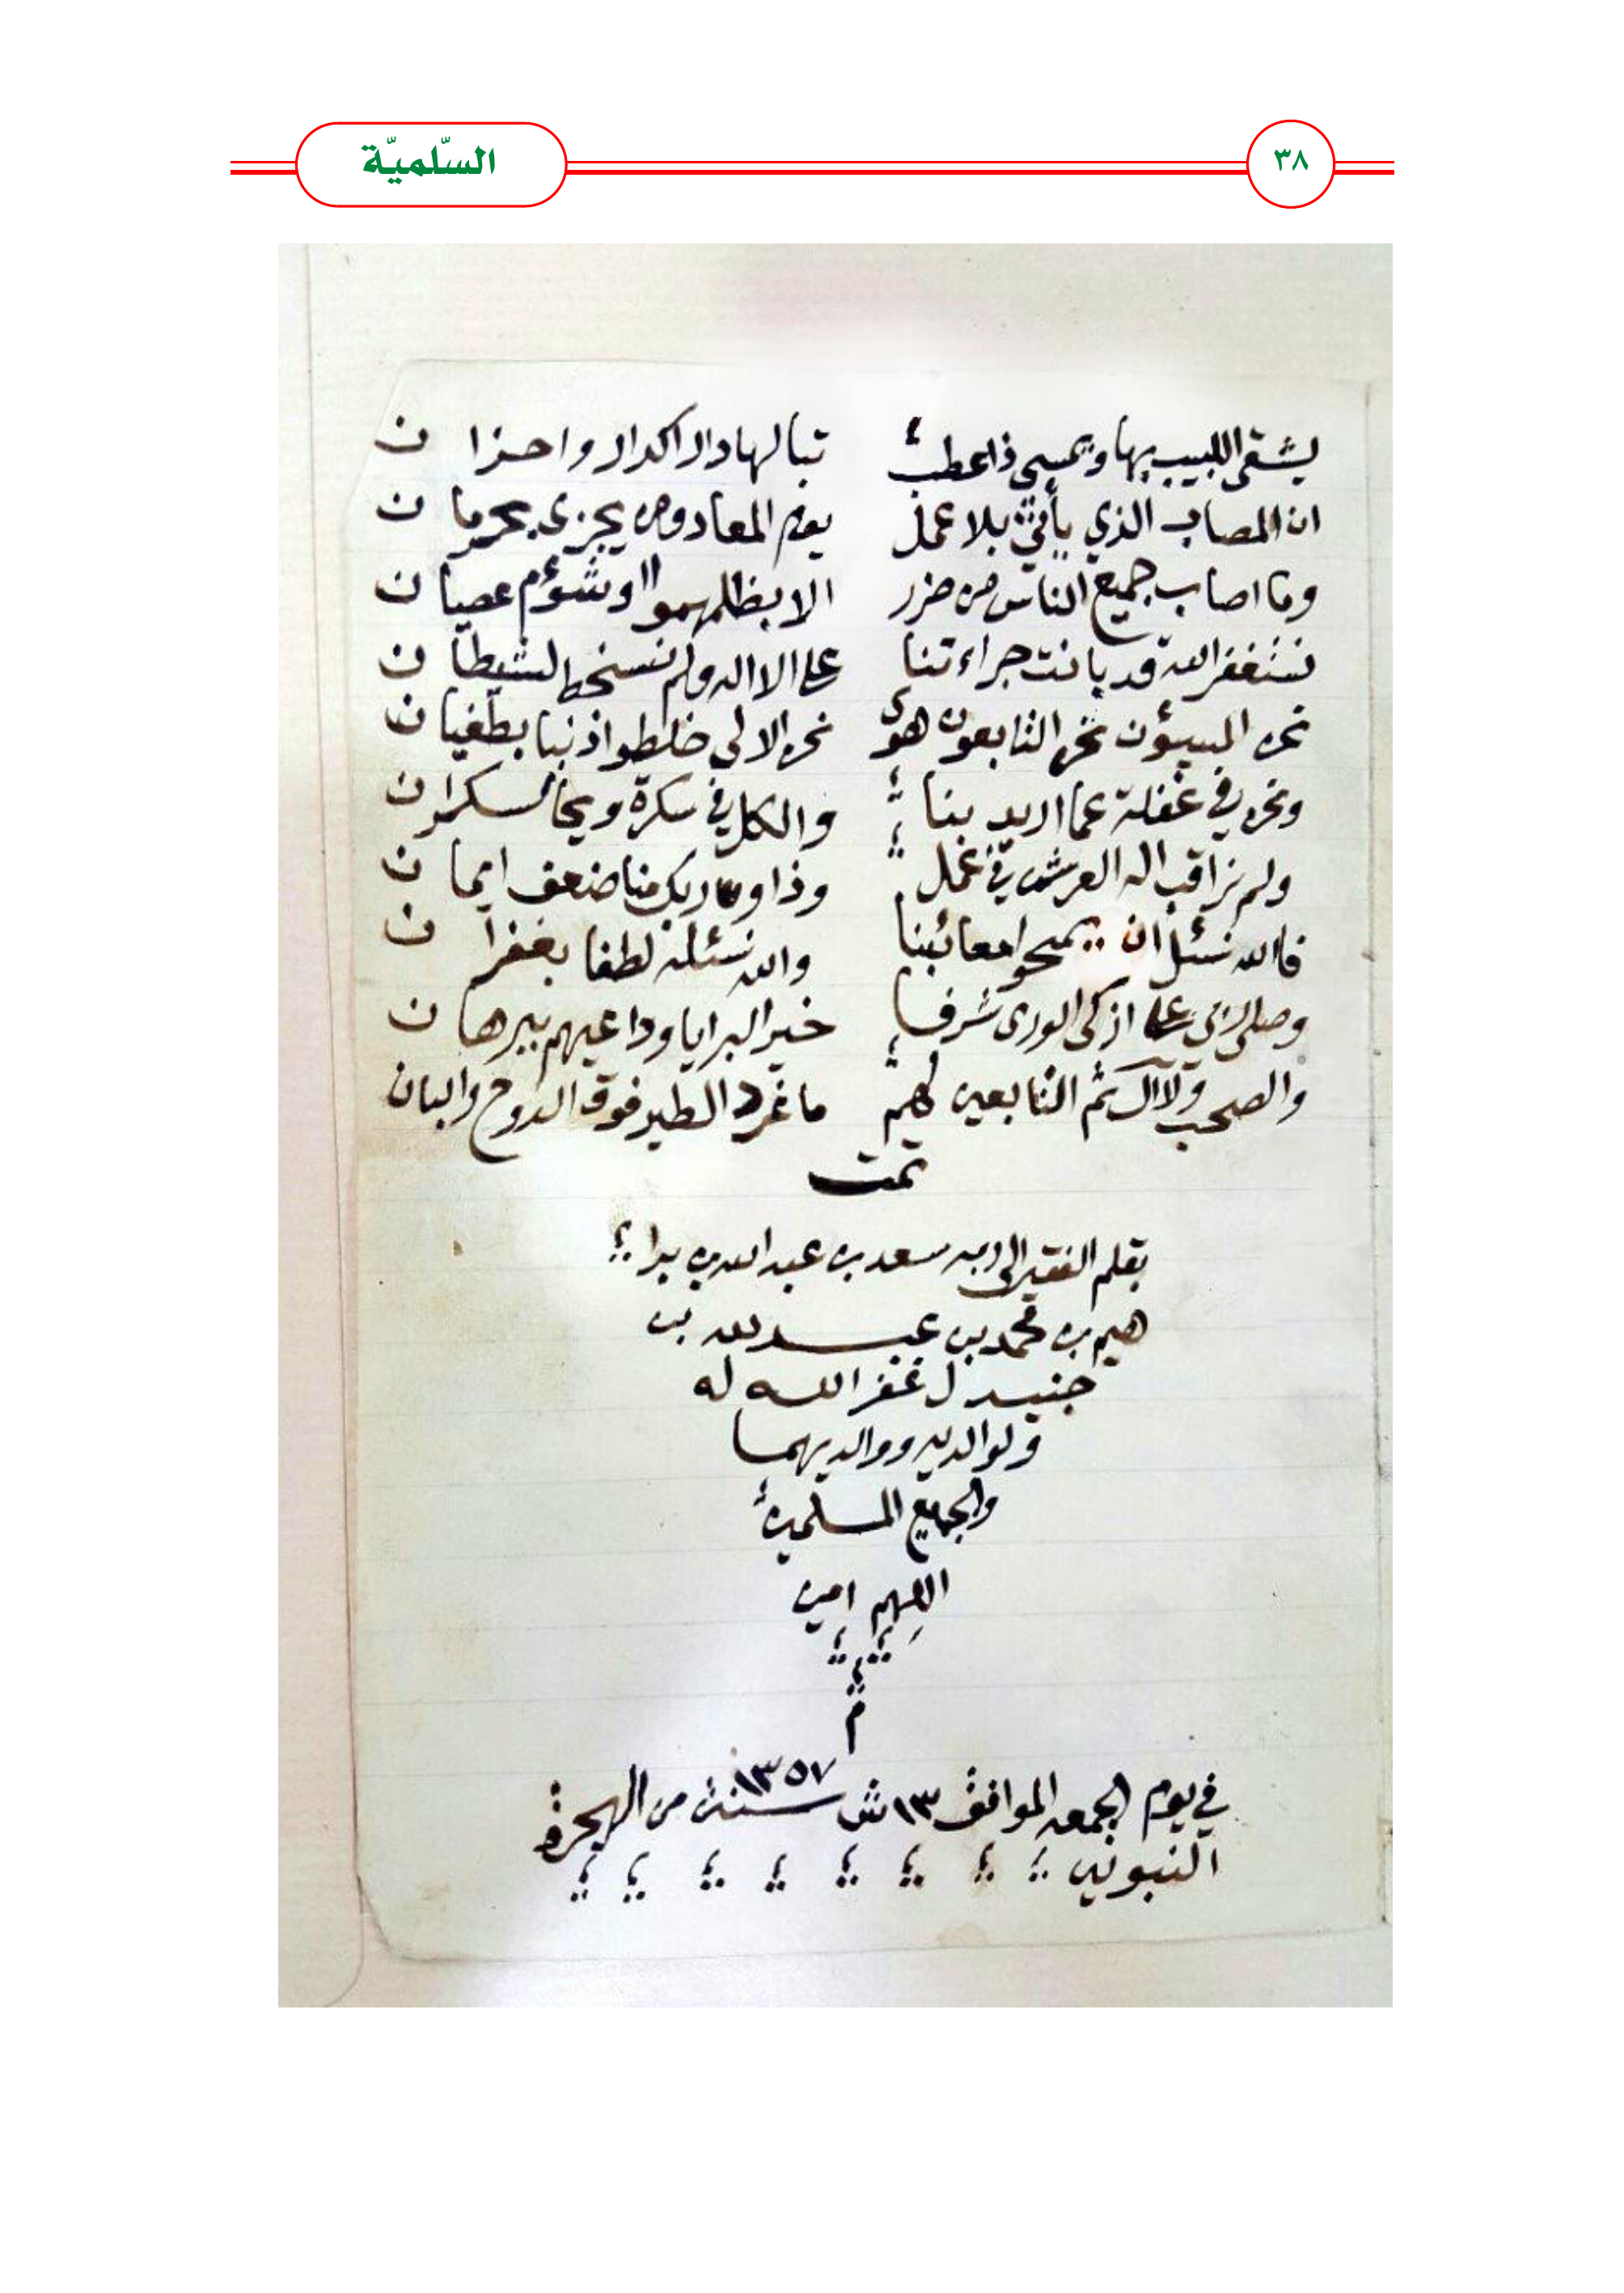 ٣٨
السّلميّة
يشقى اللبيب بها ويمسي ذا عطب تبا لها دار اكدار واحزان
ان المصاب الذي يأتي بلا عمل يوم المعاد ومن يجزى بحرمان
وما اصاب جميع الناس من ضرر الا بظلمهموا اوشؤم عصيان
نستغفر الله قد بانت جراءتنا على الا اله ولم نسخط لشيطان
نحن المسيؤن نحن التابعون هوى نحن الالى خلطوا ذنبا بطغيان
ونحن في غفلة عما اريد بنا والكل في سكرة ويحا لسكران
ولم نراقب اله العرش في عمل وذا وربك منا ضعف ايمان
فالله نسئل ان يمحو امعائبنا والله نسئله لطفا بغفران
وصلي على ازكى الورى شرفا خير البرايا وداعيهم ببرهان
والصحب ولاال ثم التابعين لهم ما غرد الطير فوق الدوح والبان
تمت
بقلم الفقير الى ربه سعد بن عبد الله بن برا
هيم بن محمد بن عبد لله بن
جنيدل غفر الله له
ولوالديه ووالديهما
والجميع المسلمين
اللهم امين
م
في يوم الجمعه الموافق ١٣ ش سنة ١٣٥٧ من الهجرة
النبويه